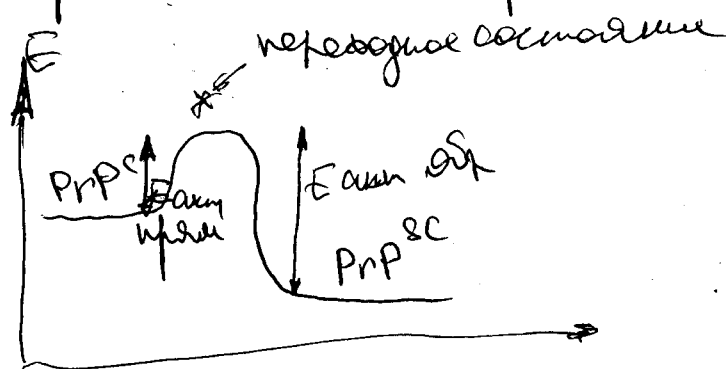 E
переходное состояние
*
PrP^C
E акт
прям
E акт обр
PrP^SC